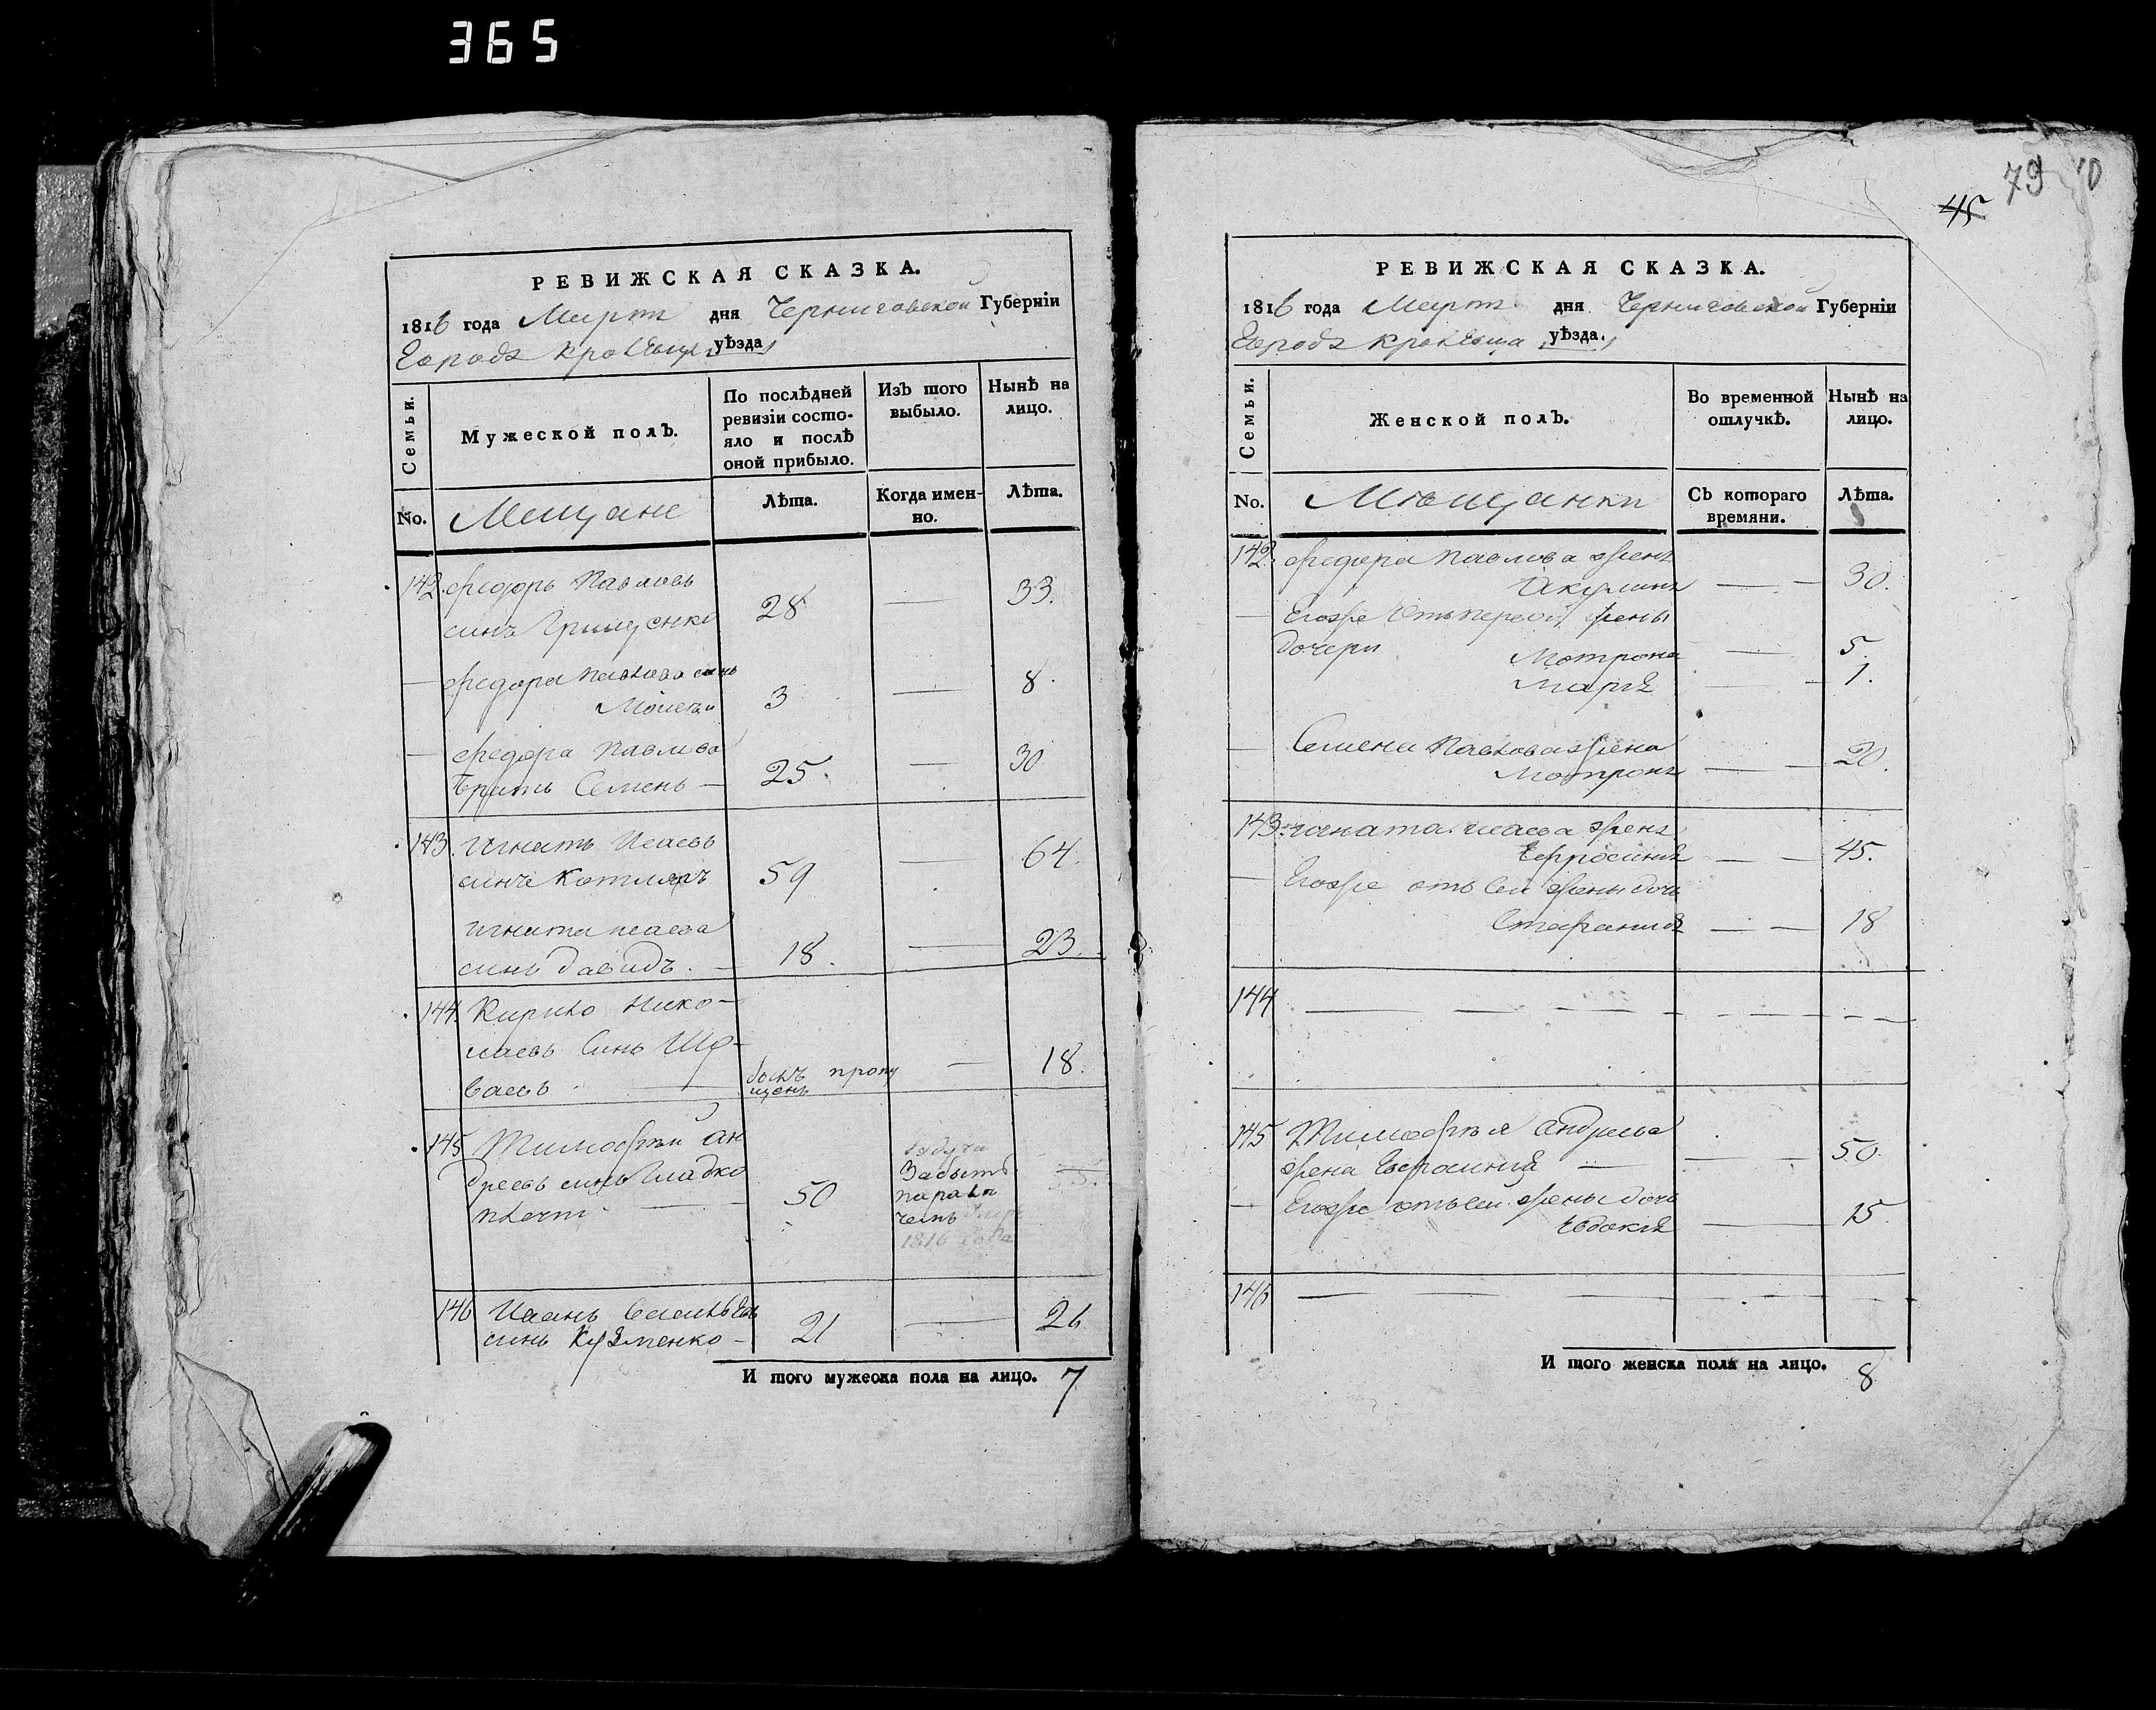 365
РЕВИЖСКАЯ СКАЗКА.
1816 года Мартъ дня Черниговской Губерніи
Города Кролевца уѣзда
Семьи.
Мужеской полъ.
По послѣдней ревизіи состо-
яло и послѣ
оной прибыло.
Изъ того
выбыло.
Нынѣ на
лицо.
No.
Мещане
Лѣта.
Когда имен-
но.
Лѣта.
142. Федоръ Павловъ
синъ Грищенко 28 — 33.
— Федора Павлова синъ
Моисей 3 — 8.
— Федора Павлова
братъ Семенъ — 25. — 30
143. Игнатъ Исаевъ
синъ Котляръ 59 — 64.
Игната Исаева
синъ Давидъ. — 18. — 23.
144. Кирило Нико-
лаевъ Синъ
ваевъ — 18.
пропу
щенъ
145 Тимофѣй Ан
дреевъ синъ Гладко
50
Забытъ
1816 года
146 Иванъ Васильевъ
синъ Кузменко — 21 — 26
И того мужеска пола на лицо. 7
45
79
10
РЕВИЖСКАЯ СКАЗКА.
1816 года Мартъ дня Черниговской Губерніи
Города Кролевца уѣзда.
Семьи.
Женской полъ.
Во временной
отлучкѣ.
Нынѣ на
лицо.
No.
Мѣщанки
Съ котораго
времяни.
Лѣта.
142. Федора Павлова жена
Акулина — — 30.
— Егоже отъ первой жены
дочери Мотрона — 5.
Марѣ — — 1.
— Семена Павлова жена
Мотрона — — 20.
143. Игната Исаева жена
Ефросинѣ — — 45.
— Егоже отъ сей жены дочь
Стефанидѣ — — 18
144 — — — — — —
145 Тимофѣя Андреева
жена Ефросинія — — — 50.
— Егоже отъ сей жены дочь
Евдокіѣ — 15.
146 — — — — — —
И того женска пола на лицо. 8